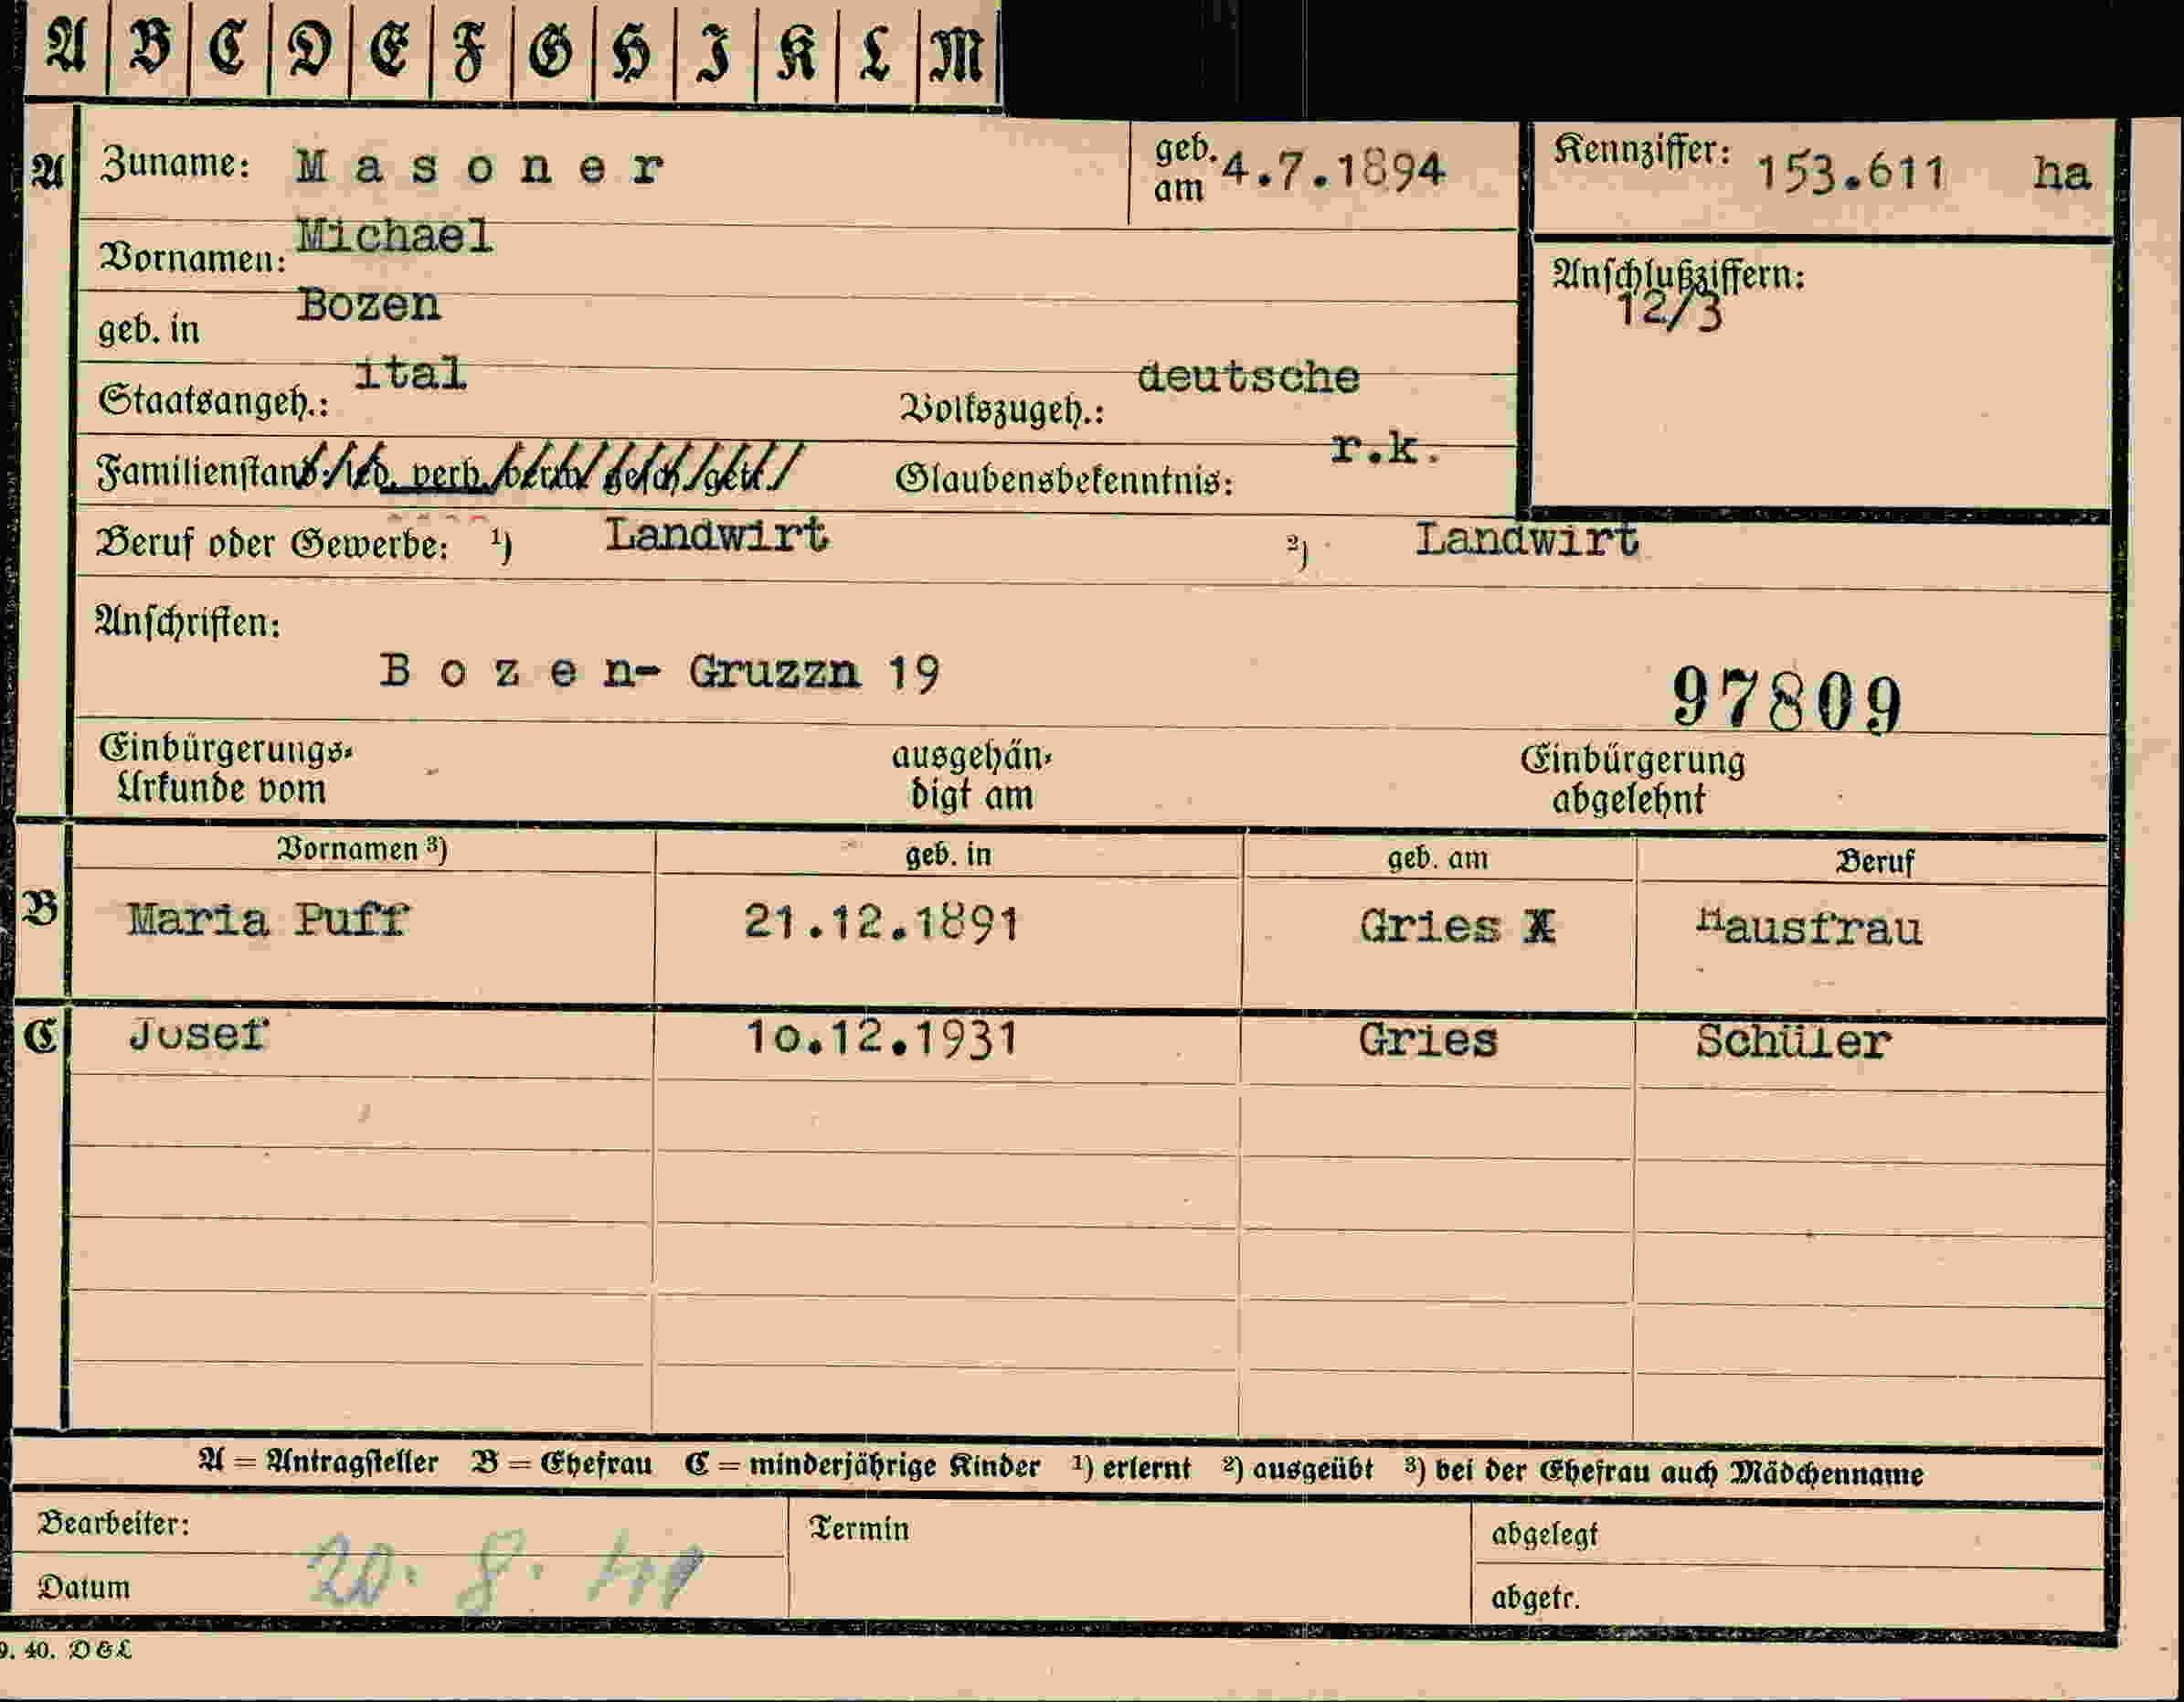 A B C D E F G H I K L M
A Zuname: M a s o n e r geb. am 4.7.1894 Kennziffer: 153.611 ha
Vornamen: Michael Anschlußziffern:
12/3
geb. in Bozen
Staatsangeh.: ital Volkszugeh.: deutsche
Familienstand: led. verh. verw. gesch. getr. Glaubensbekenntnis: r.k.
Beruf oder Gewerbe: ¹) Landwirt ²) Landwirt
Anschriften:
B o z e n- Gruzzn 19 97809
Einbürgerungs- ausgehän- Einbürgerung
Urkunde vom digt am abgelehnt
Vornamen ³) geb. in geb. am Beruf
B Maria Puff 21.12.1891 Gries X Hausfrau
C Josef 1o.12.1931 Gries Schüler
A = Antragsteller B = Ehefrau C = minderjährige Kinder ¹) erlernt ²) ausgeübt ³) bei der Ehefrau auch Mädchenname
Bearbeiter: Termin abgelegt
Datum 20. 8. abgetr.
9. 40. D & L